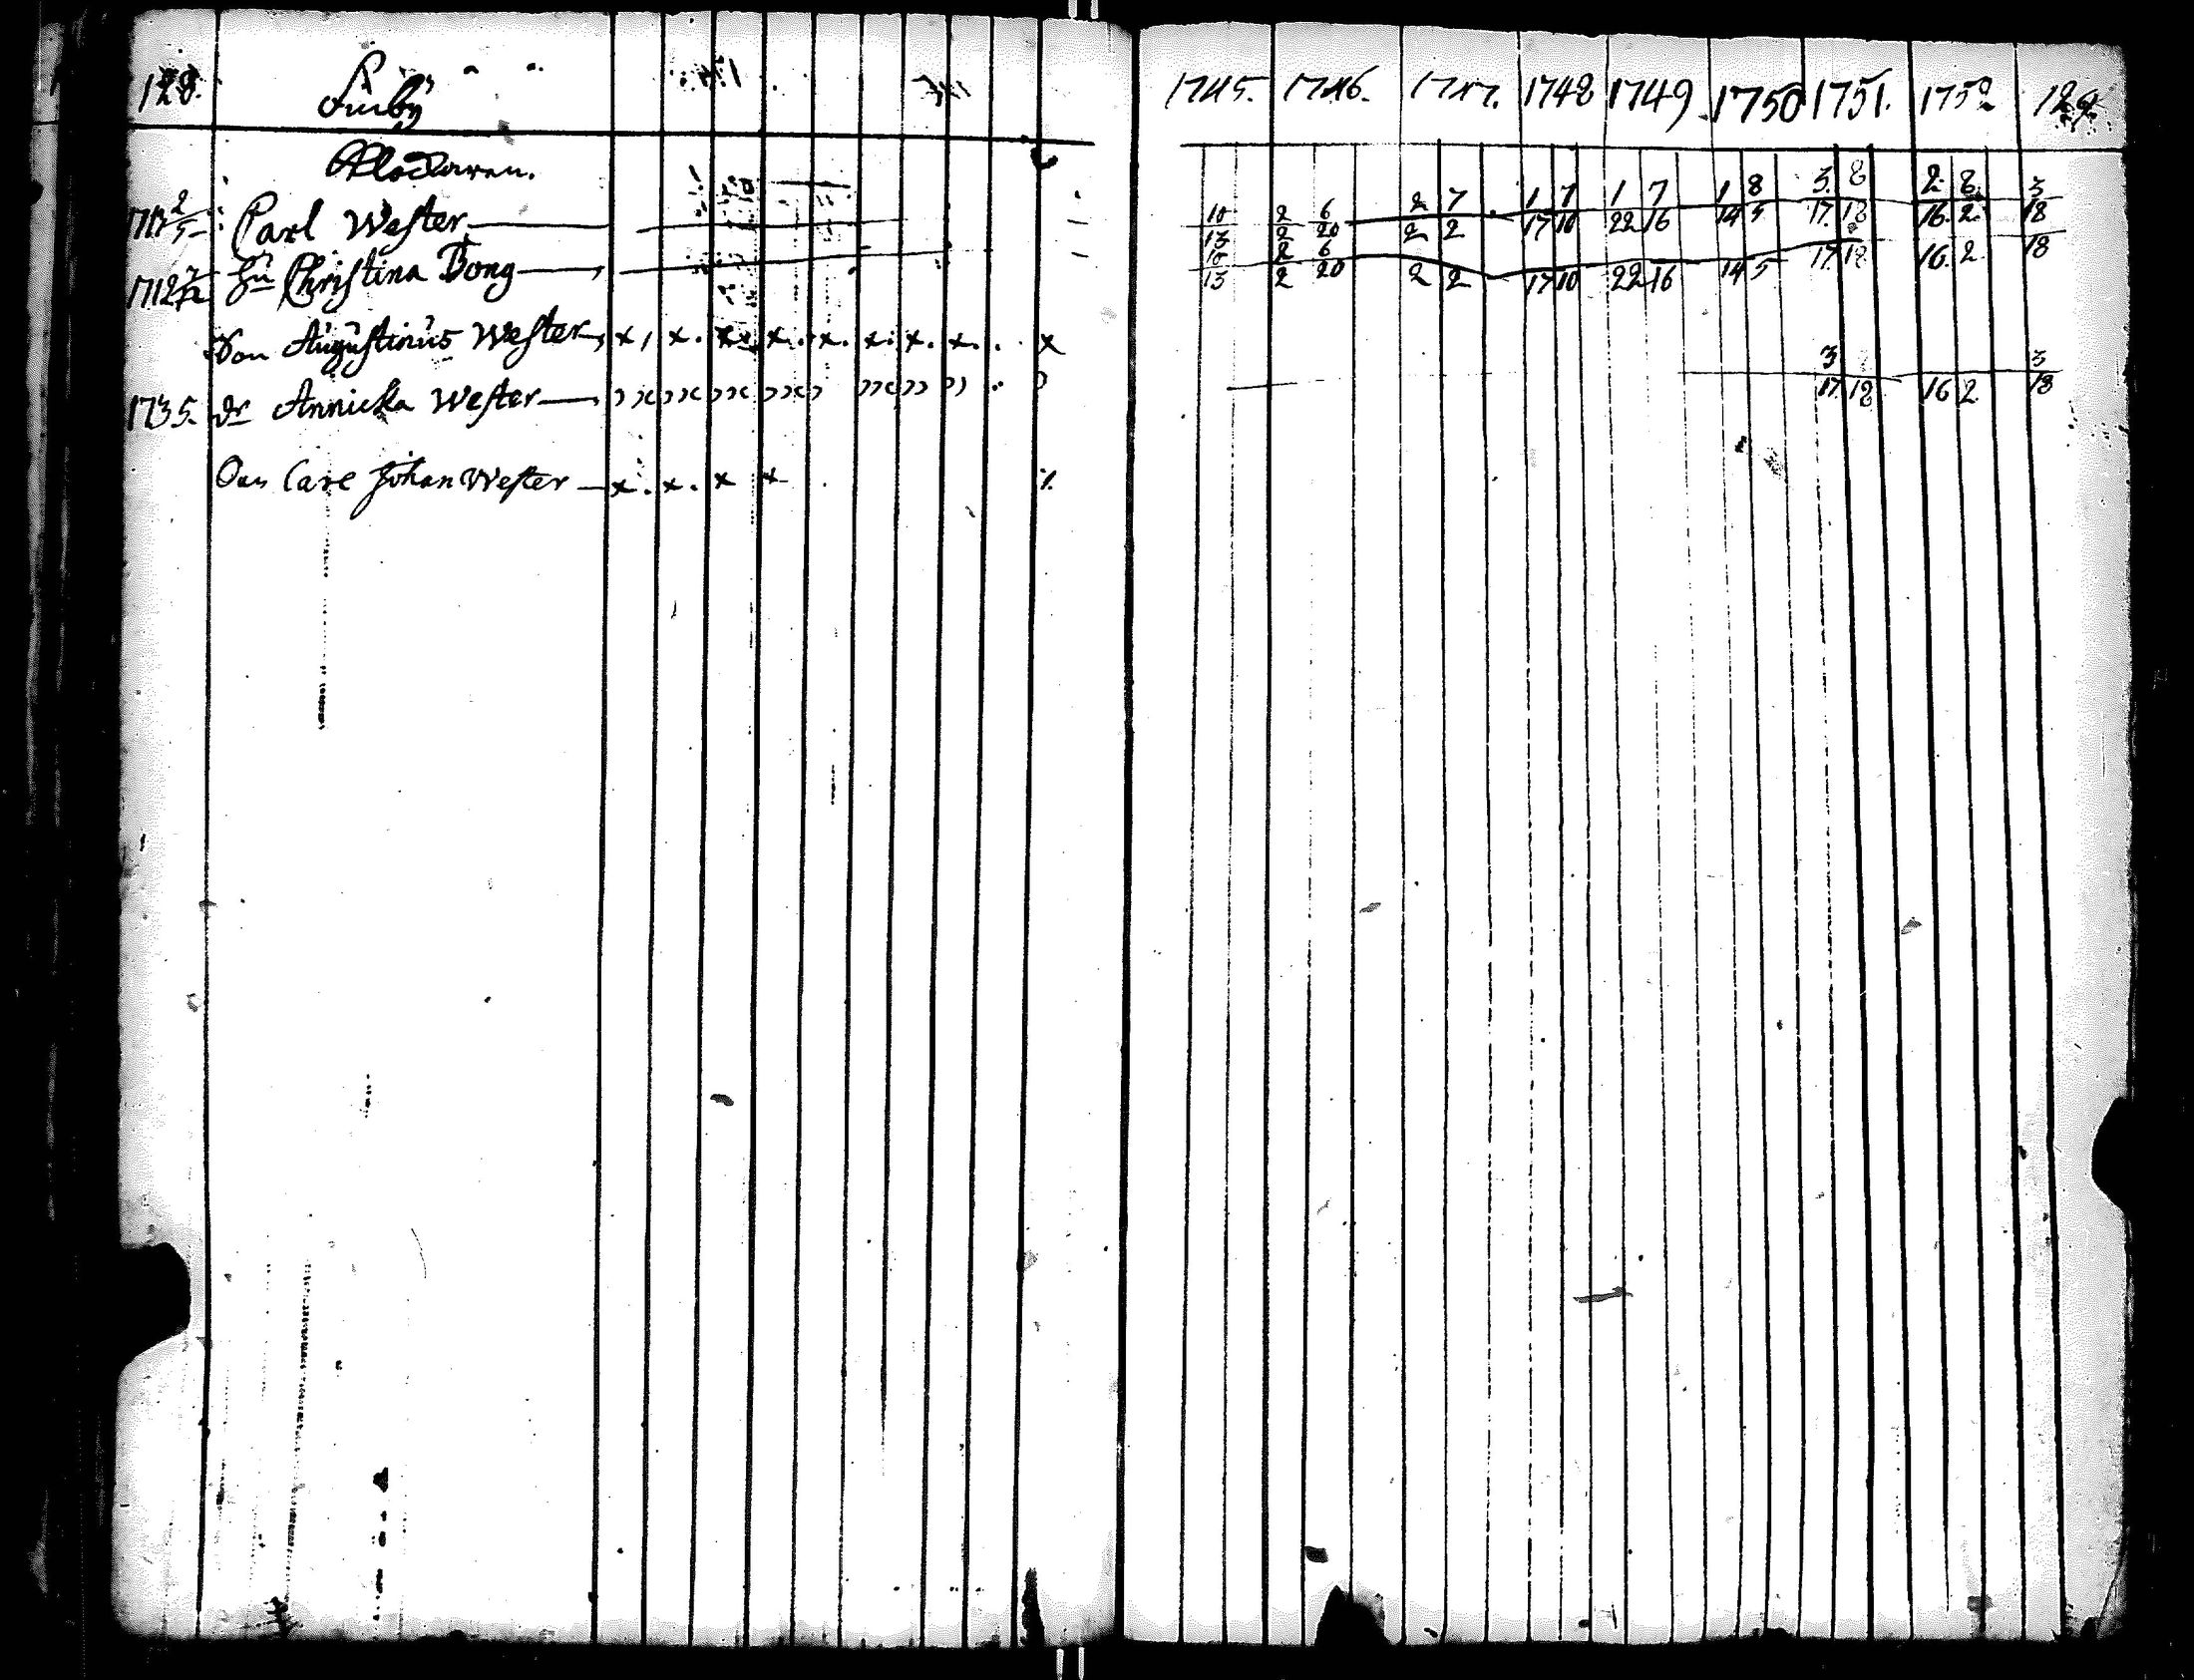 128.
Klockaren.
Carl Wester
1712 Hu Christina Bong
Son Augustinus Wester x x. x x. x. x. x. x. x
1735. dr Annicka Wester
Son Carl Johan Wester x. x. x x
1745. 1746. 1747. 1748 1749. 1750 1751. 1752 129.
2 7 1 7 1 7 1 8 3. 8 2. 8. 3
10 2 6 17 10 22 16 14 5 17. 18 16. 2. 18
13 2 20 2 2
10 2 6 17. 18 16. 2. 18
13 2 20 2 2 17 10 22 16 14 5
3 3
17. 18 16 2 18